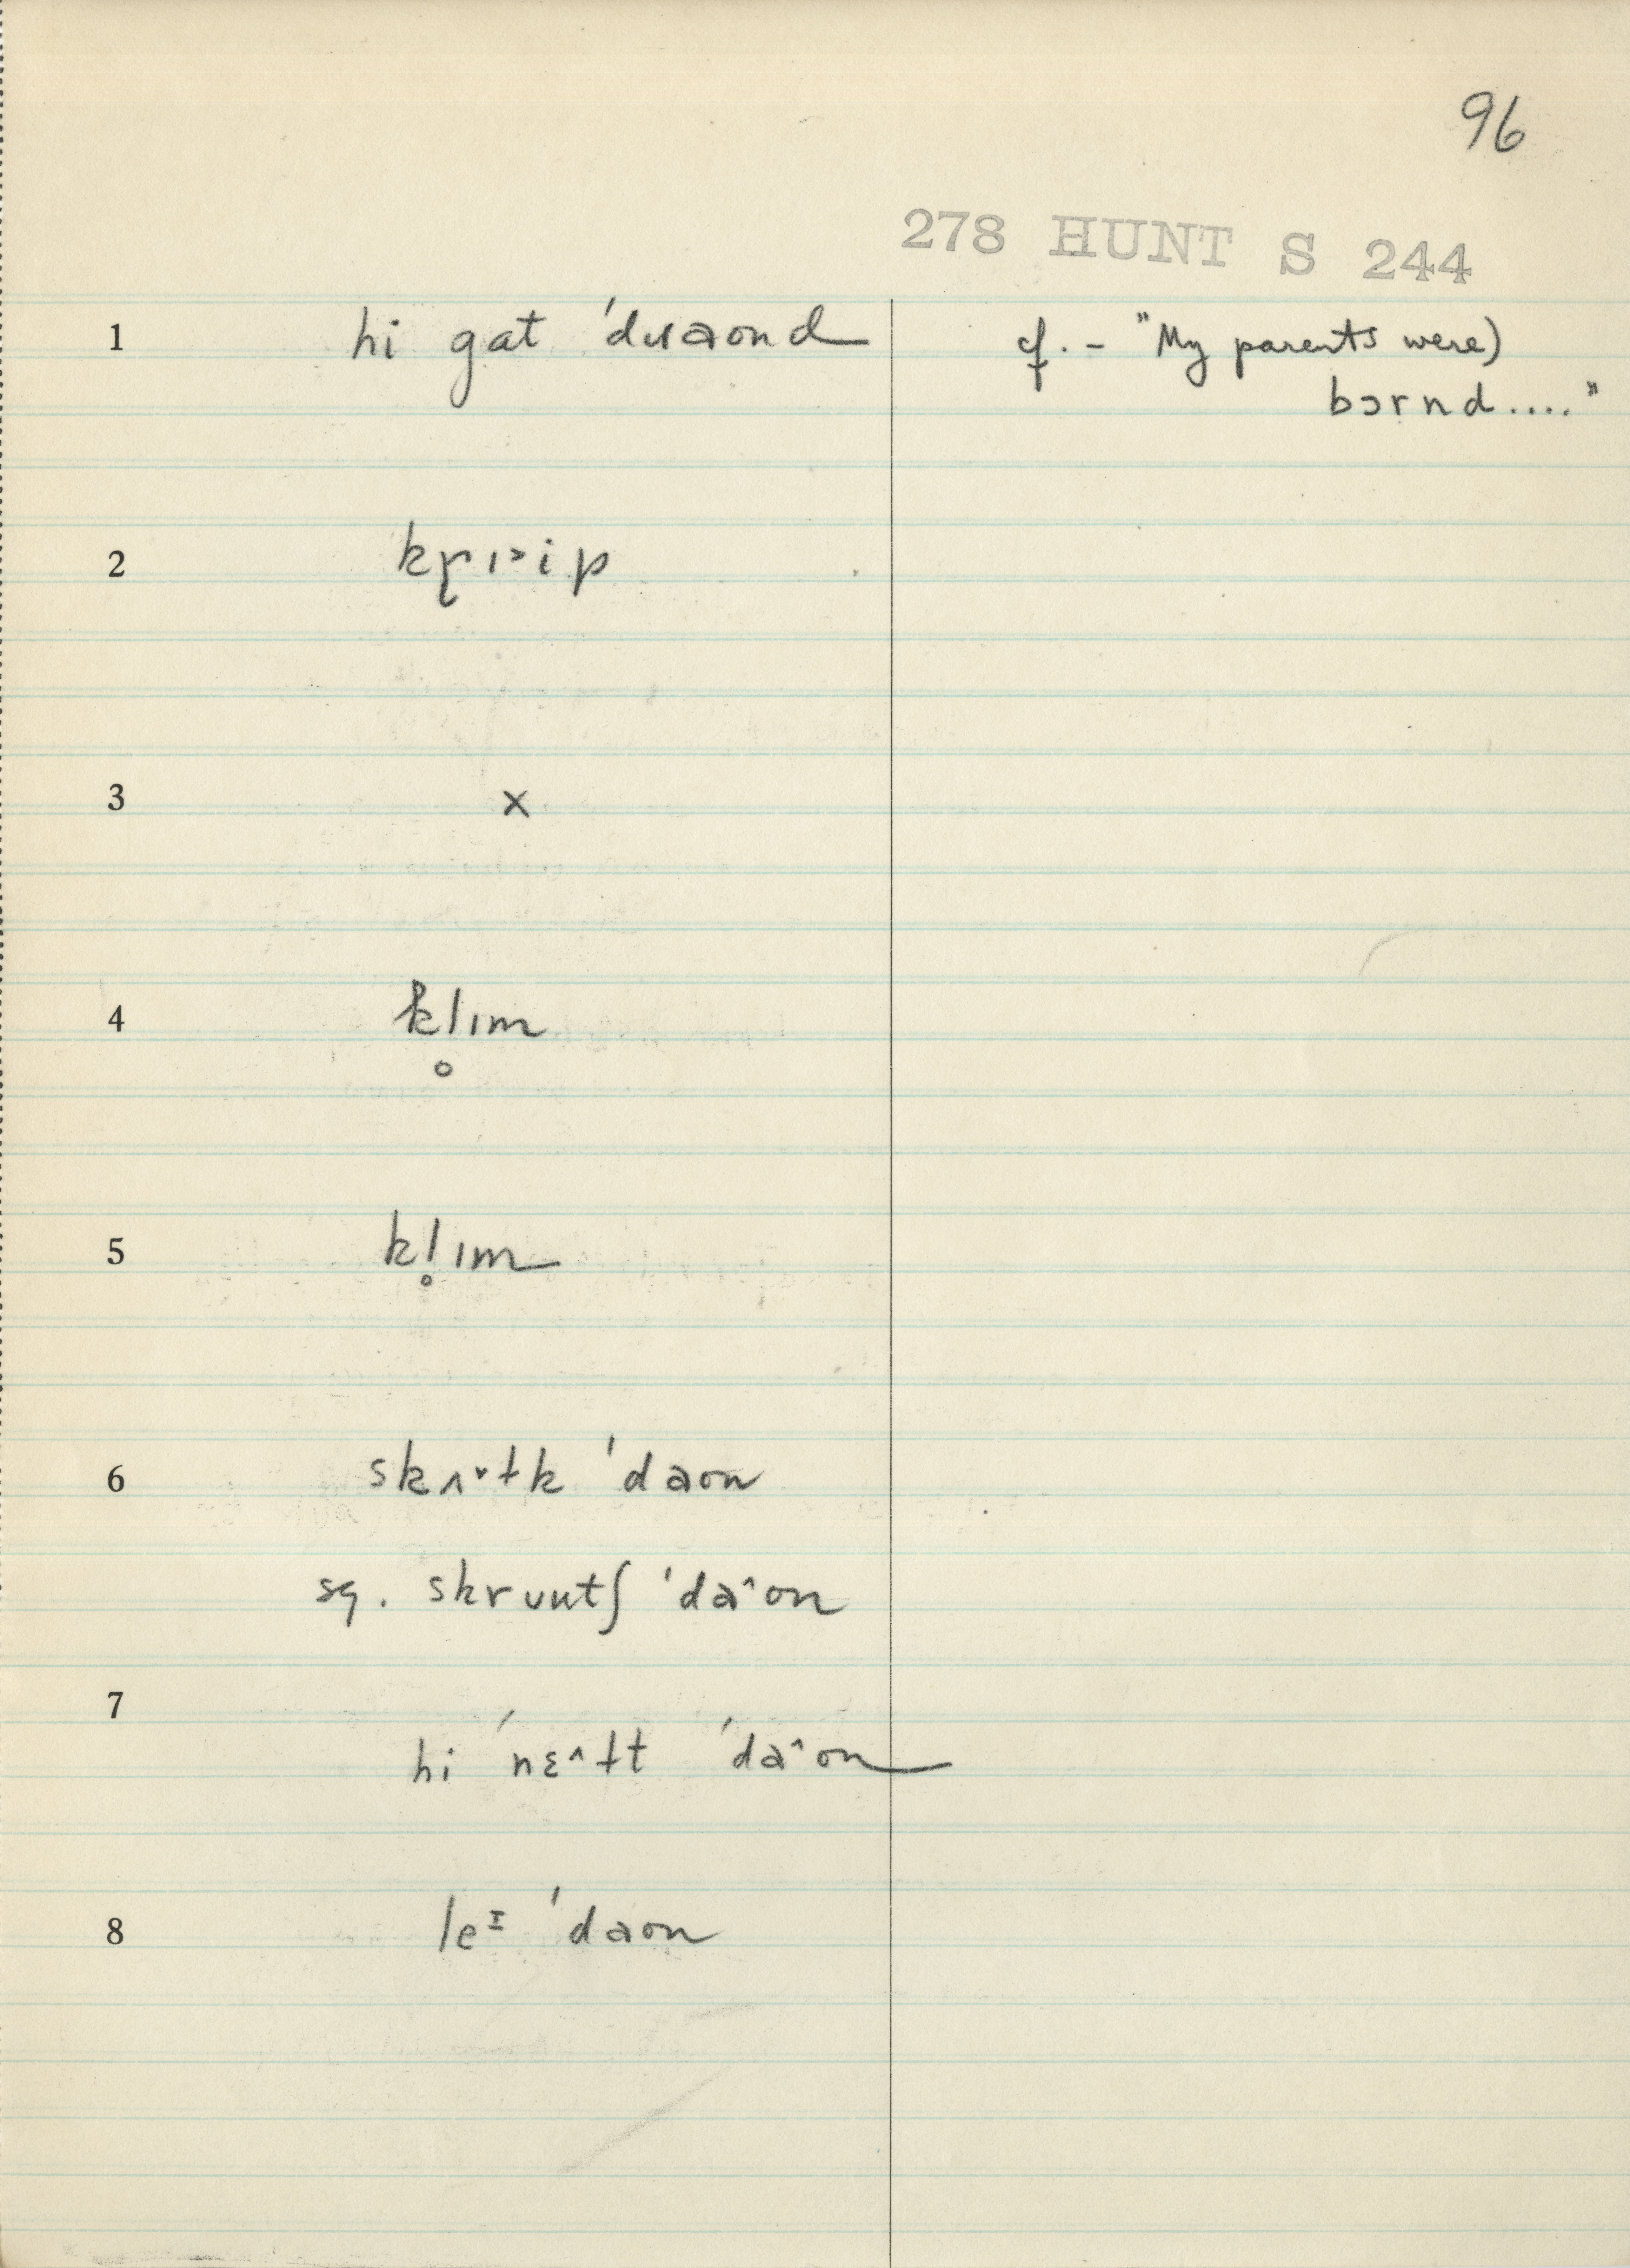 96
278 HUNT S 244
1 hi gat ˈdɹaond cf. - "My parents were)
bɔrnd...."
2 kɽɪ˃ip
3 x
4 kl̥ɪm
5 kl̥ɪm
6 skʌ˅ɫk ˈdaon
sg. skrʊutʃ ˈda^on
7
hi ˈnɛ^ɫt ˈda^on
8 leᴵ ˈdaon